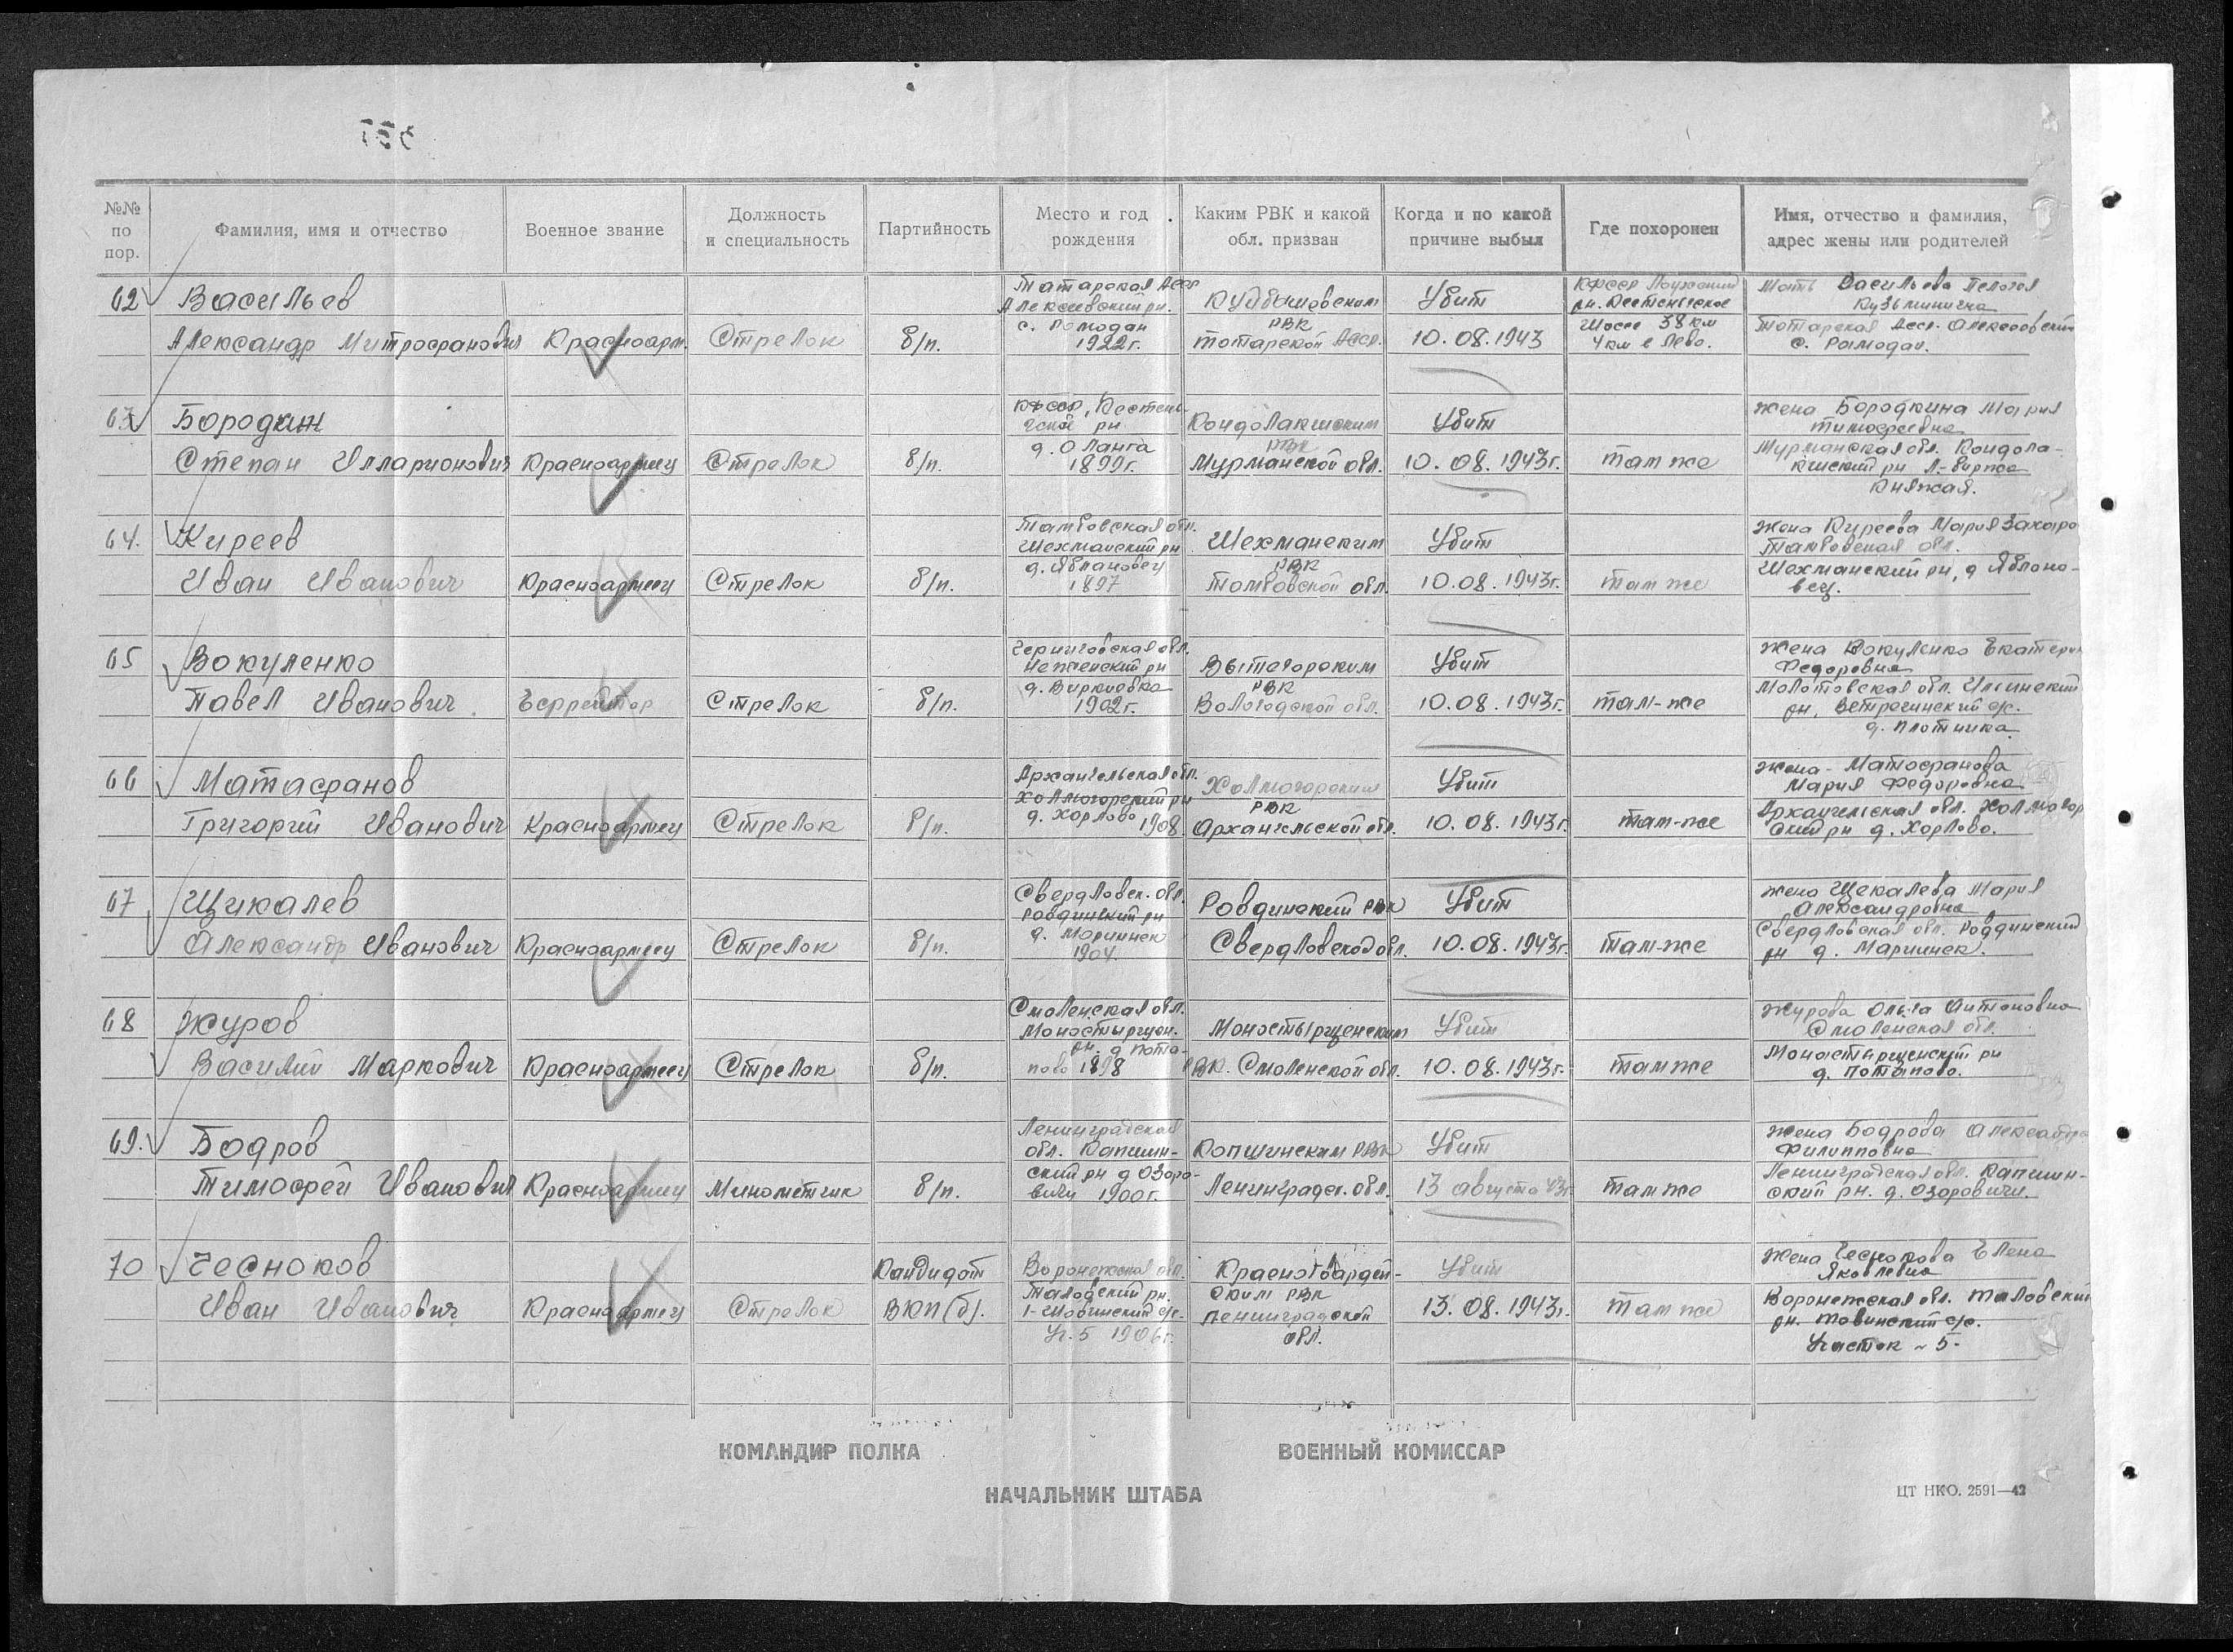 №№ по пор.
Фамилия, имя и отчество
Военное звание
Должность и специальность
Партийность
Место и год рождения
Каким РВК и какой обл. призван
Когда и по какой причине выбыл
Где похоронен
Имя, отчество и фамилия, адрес жены или родителей
62
Васильев
Александр Митрофанович
Красноарм.
Стрелок
б/п.
Татарская Асср
Алексеевский рн.
с. Ромодан
1922г.
Куйбышевским
РВК
татарской Асср.
Убит
10.08.1943
КФССР Лоухский
рн. Кестеньгское
Шоссе 38 км
4 км с лево.
Мать Васильева Пелагея
Кузьминична
Татарская Асср. Алексеевский
с. Рамодан.
63
Бородкин
Степан Илларионович
Красноармеец
Стрелок
б/п.
КФССР, Кестень-
гский рн
д. Оланга
1899г.
Кондолакшским
РВК
Мурманской обл.
Убит
10.08.1943г.
там же
жена Бородкина Мария
тимофеевна
Мурманская обл. Кондола-
кшский рн Л-биржа
Княжая.
64.
Киреев
Иван Иванович
Красноармеец
Стрелок
б/п.
Тамбовская обл.
Шехманский рн
д. Яблановец
1897
Шехманским
РВК
Тамбовской обл.
Убит
10.08.1943г.
там же
жена Киреева Мария Захаро
Тамбовская обл.
Шехманский рн, д Яблоно-
вец.
65
Вокуленко
Павел Иванович
Ефрейтор
Стрелок
б/п.
Черниговская обл.
Неженский рн
д. Виркиевка
1902г.
Вытегорским
РВК
Вологодской обл.
Убит
10.08.1943г.
там-же
жена Вокуленко Екатерин
Федоровна
Молотовская обл. Ильинский
рн, Ветрегинский с/с.
д. Плотника
66
Матафанов
Григорий Иванович
Красноармеец
Стрелок
б/п.
Архангельская обл.
Холмогорский рн
д. Хорлово
1908
Холмогорским
РВК
Архангельской обл.
Убит
10.08.1943г.
там-же
жена - Матофанова
Мария Федоровна
Архангельская обл. Холмогор
ский рн д. Хорлово.
67
Щикалев
Александр Иванович
Красноармеец
Стрелок
б/п.
Свердловск. обл.
Ровдинский рн
д. Мариинск
1904
Ровдинский РВК
Свердловской обл.
Убит
10.08.1943г.
там-же
жена Щекалева Мария
Александровна
Свердловская обл. Роддинский
рн д. Мариинск.
68
Журов
Василий Маркович
Красноармеец
Стрелок
б/п.
Смоленская обл.
Моностырщен.
рн. д Пота-
пово 1898
Моностырщенским
РВК. Смоленской обл.
Убит
10.08.1943г.
там же
Журова Ольга Антоновна
Смоленская обл.
Монастырщенский рн
д. Потапово.
69.
Бодров
Тимофей Иванович
Красноармеец
Минометчик
б/п.
Ленинградская
обл. Капшин-
ский рн д Озоро-
вичи 1900г.
Копшинским РВК
Ленинградск. обл.
Убит
13 августа 43г
там же
жена Бодрова Александра
Филипповна
Ленинградская обл. Капшин-
ский рн. д. Озоровичи.
70
Чесноков
Иван Иванович
Красноармеец
Стрелок
Кандидат
ВКП(б).
Воронежская обл.
Таловский рн.
1-Шовинский с/с.
Уч. 5 1906г.
Красногвардей-
ским РВК
Ленинградской
обл.
Убит
13.08.1943г.
там же
Жена Чеснокова Елена
Яковлевна
Воронежская обл. таловский
рн. товинский с/с.
Участок ~ 5-
КОМАНДИР ПОЛКА
ВОЕННЫЙ КОМИССАР
НАЧАЛЬНИК ШТАБА
ЦТ НКО. 2591—42